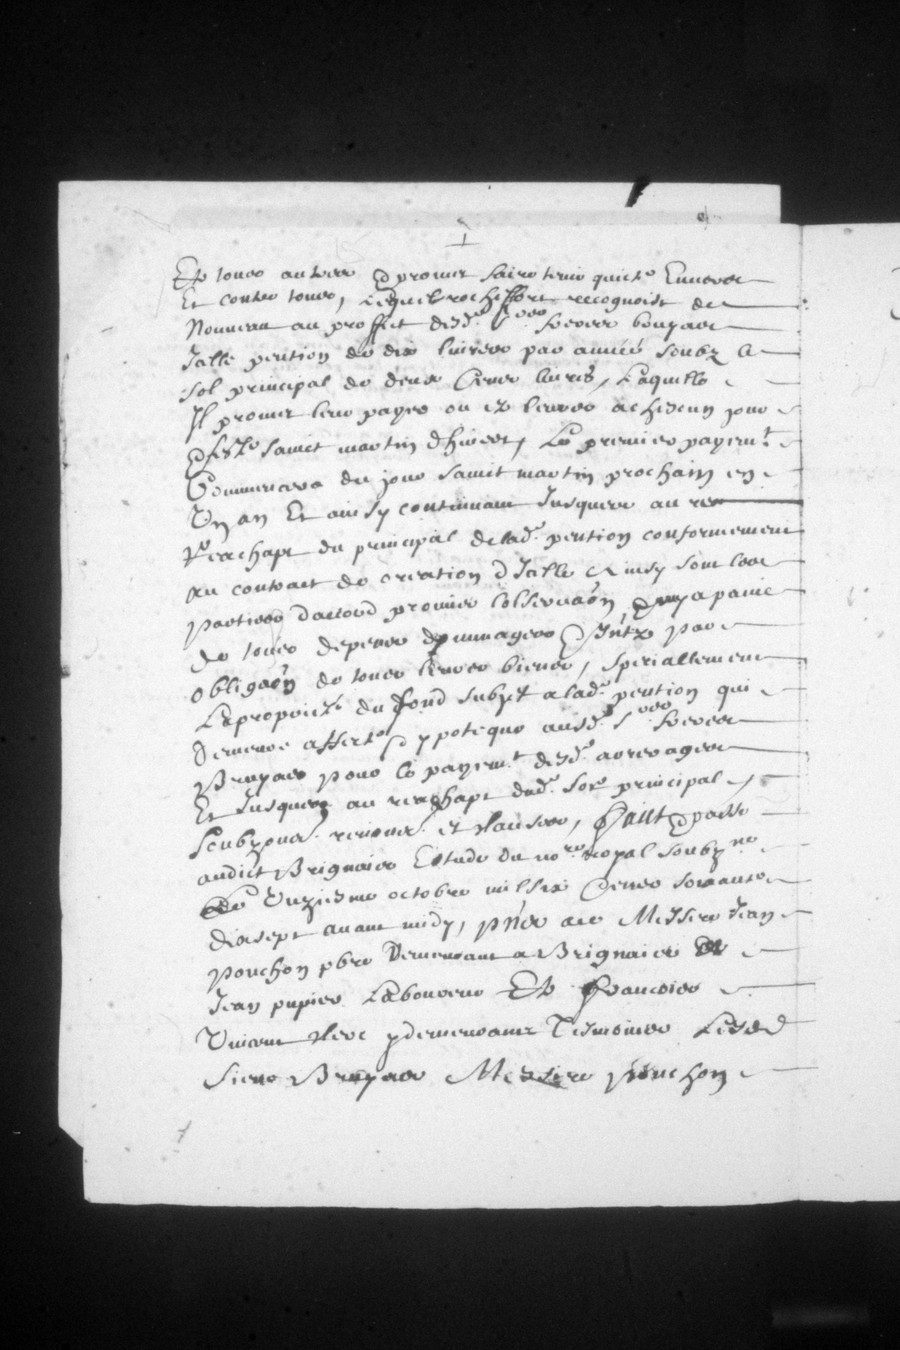 Et tous autres & promet faire tenir quicte Envers
Et contre tous, Lequel rocheffort recognoist de
Nouveau au proffict desd. srs freres bruyas
Jalle pention de dix livres par année soubz le
sol principal de deux Cens livres, Laquelle
Il promet leur payer ou es leurs a chescun jour
& feste sainct martin dhiver, Le premier payemt
Commencera du jour sainct martin prochain en
Un an Et ainsy continuant Jusques au
reachapt du principal de lad. pention conformement
au contract de creation dJalle Ainsy sont les
parties daccord promis lobservaon & a paine
de tous despens dommages & Intz par
obligaon de tous leurs biens, speciallement
La proprieté du fond subject a lad. pention qui
demeure affecté & ypotequé ausd. srs freres
Bruyas pour le payemt desd. arreages
Et Jusques au reachapt dud. sort principal,
soubzons renons et clauses, Faict & passé
audict Brignais Estude du nore royal soubzné
Le Unziesme octobre mil six Cens soixante
dixsept avant midy, pnts a ce Messire Jean
ponchon pbre demeurant a Brignais Et
Jean pupier Laboureur Et François
Vincent clerc y demeurant Tesmoins Lesd
sieurs Bruyas Messire ponchon